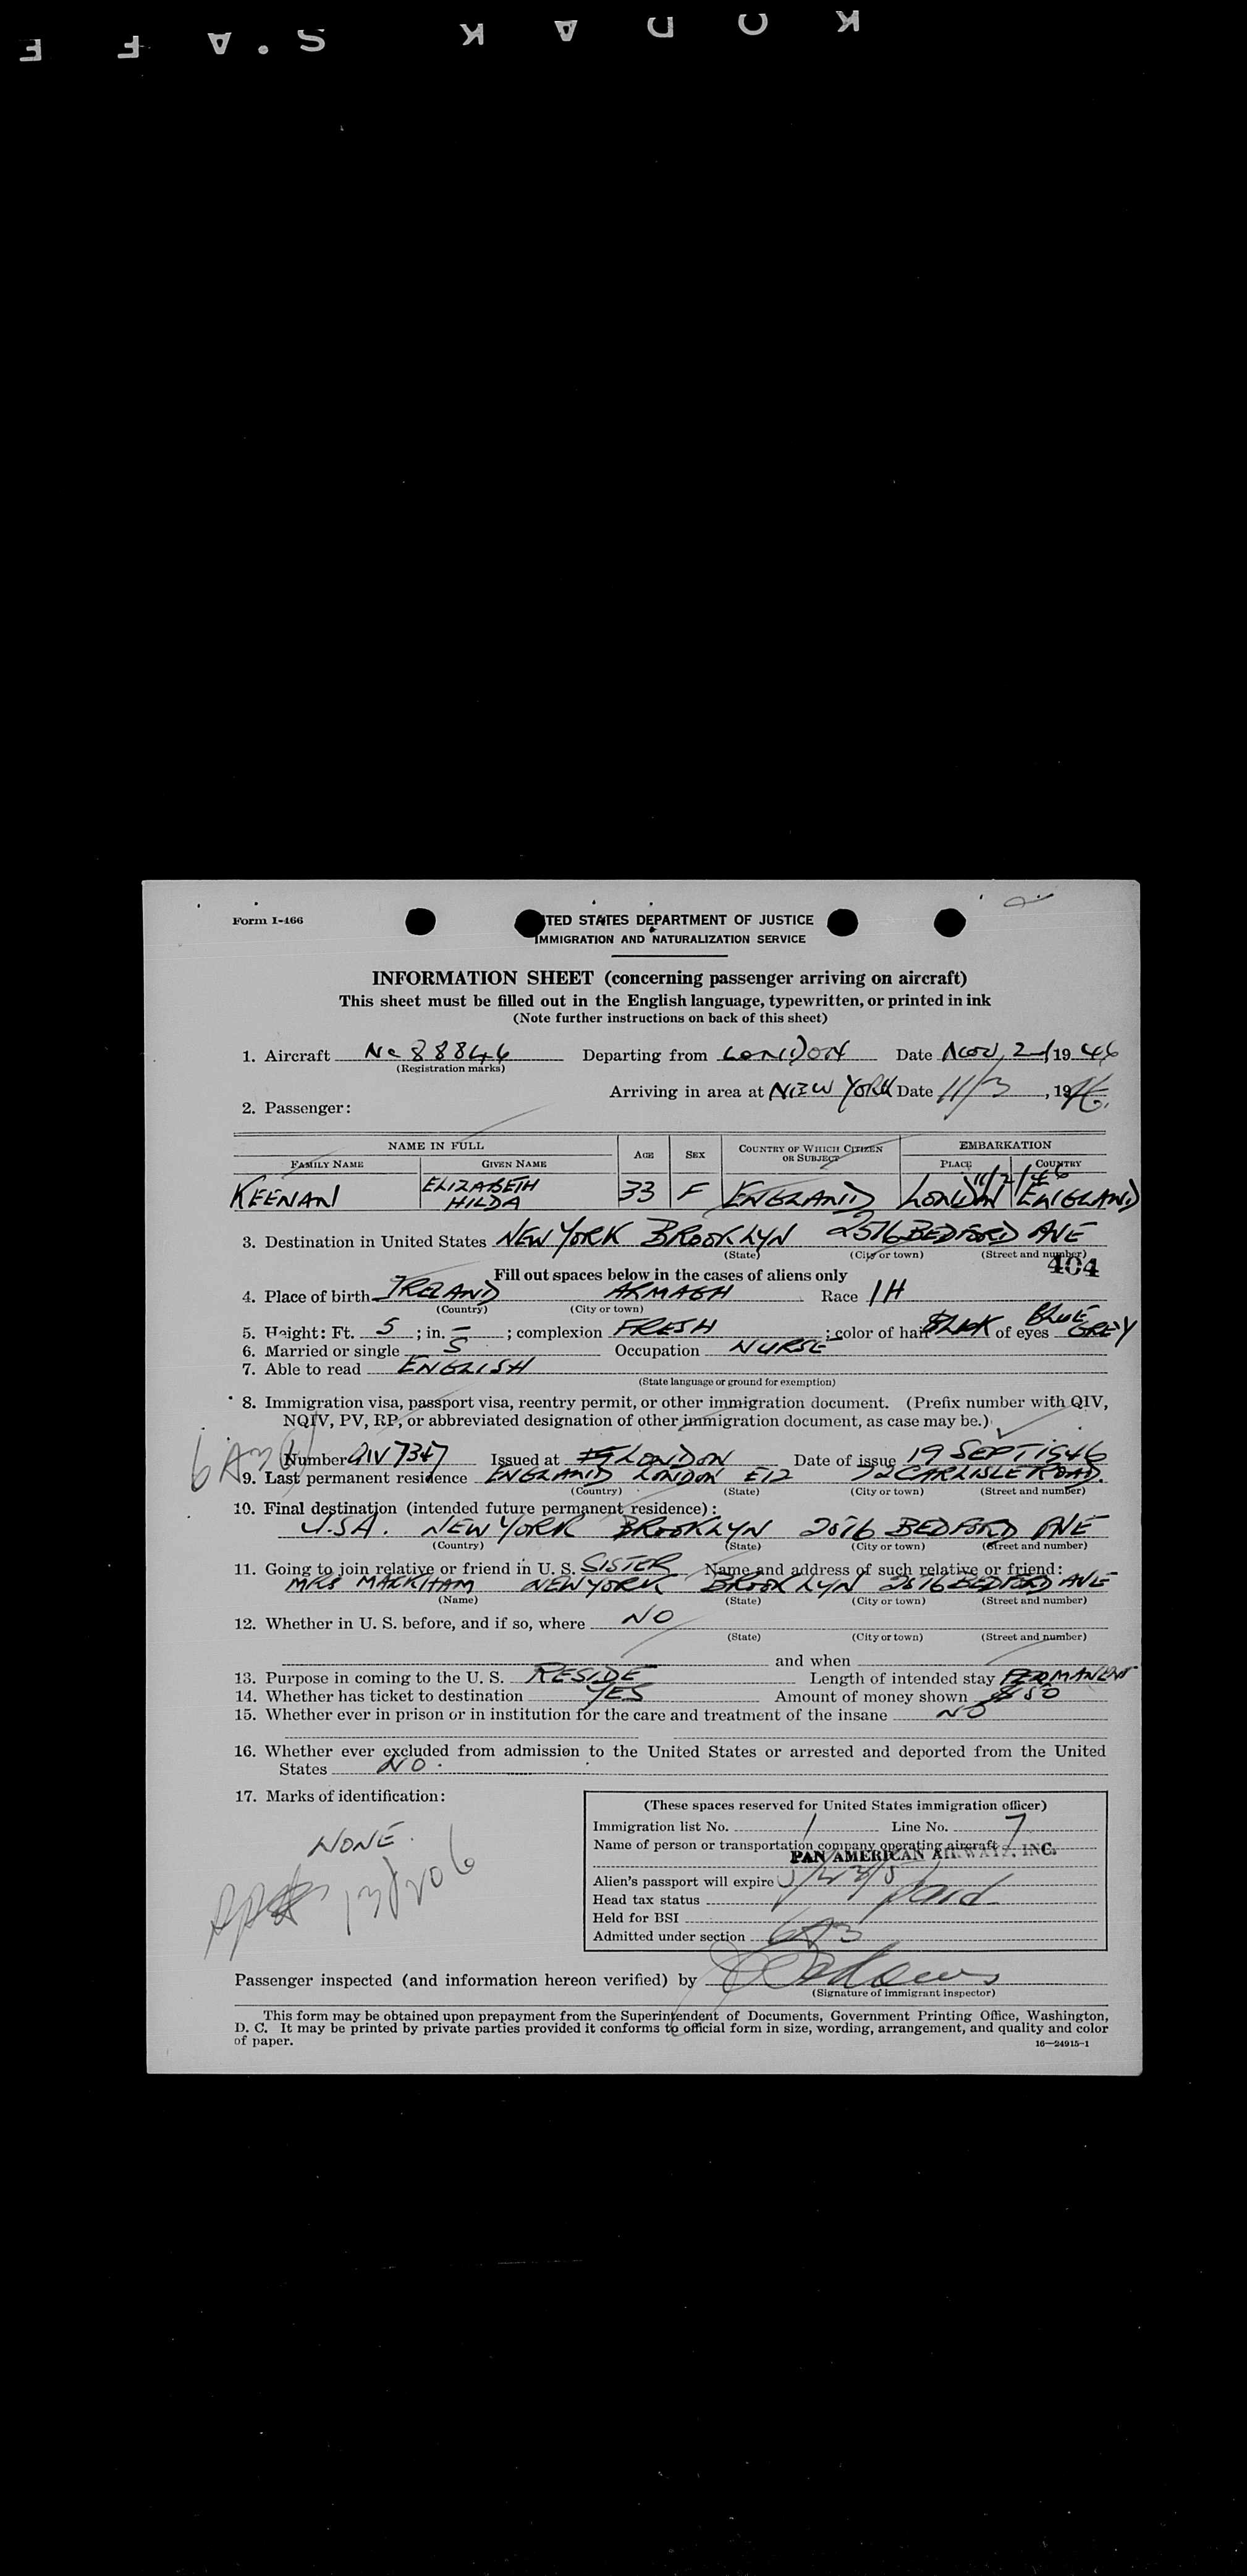 KODAK S.AFE
Form I-466
TED STATES DEPARTMENT OF JUSTICE
IMMIGRATION AND NATURALIZATION SERVICE
INFORMATION SHEET (concerning passenger arriving on aircraft)
This sheet must be filled out in the English language, typewritten, or printed in ink
(Note further instructions on back of this sheet)
1. Aircraft Nc 88846 Departing from LONDON Date Nov, 2 1946
(Registration marks)
Arriving in area at NEW YORK Date 11/3, 1946.
2. Passenger:
NAME IN FULL AGE SEX COUNTRY OF WHICH CITIZEN OR SUBJECT EMBARKATION
FAMILY NAME GIVEN NAME PLACE COUNTRY
11/2/46
KEENAN ELIZABETH HILDA 33 F ENGLAND LONDON ENGLAND
3. Destination in United States NEW YORK BROOKLYN 2516 BEDFORD AVE
(State) (City or town) (Street and number)
404
Fill out spaces below in the cases of aliens only
4. Place of birth IRELAND ARMAGH Race IH
(Country) (City or town)
5. Height: Ft. 5; in. –; complexion FRESH; color of hair BLACK of eyes BLUE GREY
6. Married or single S Occupation NURSE
7. Able to read ENGLISH
(State language or ground for exemption)
8. Immigration visa, passport visa, reentry permit, or other immigration document. (Prefix number with QIV,
NQIV, PV, RP, or abbreviated designation of other immigration document, as case may be.)
Number QIV 7347 Issued at LONDON Date of issue 19 SEPT 1946
9. Last permanent residence ENGLAND LONDON E12 72 CARLISLE ROAD.
(Country) (State) (City or town) (Street and number)
10. Final destination (intended future permanent residence):
U.S.A. NEW YORK BROOKLYN 2516 BEDFORD AVE
(Country) (State) (City or town) (Street and number)
11. Going to join relative or friend in U. S. SISTER Name and address of such relative or friend:
MRS MARKHAM NEW YORK BROOKLYN 2516 BEDFORD AVE
(Name) (State) (City or town) (Street and number)
12. Whether in U. S. before, and if so, where NO
(State) (City or town) (Street and number)
and when
13. Purpose in coming to the U. S. RESIDE Length of intended stay PERMANENT
14. Whether has ticket to destination YES Amount of money shown $50
15. Whether ever in prison or in institution for the care and treatment of the insane NO
16. Whether ever excluded from admission to the United States or arrested and deported from the United
States NO.
17. Marks of identification:
NONE.
(These spaces reserved for United States immigration officer)
Immigration list No. 1 Line No. 7
Name of person or transportation company operating aircraft
PAN AMERICAN AIRWAYS, INC.
Alien's passport will expire
Head tax status paid
Held for BSI
Admitted under section 6A3
Passenger inspected (and information hereon verified) by
(Signature of immigrant inspector)
This form may be obtained upon prepayment from the Superintendent of Documents, Government Printing Office, Washington,
D. C. It may be printed by private parties provided it conforms to official form in size, wording, arrangement, and quality and color
of paper.
16—24915-1